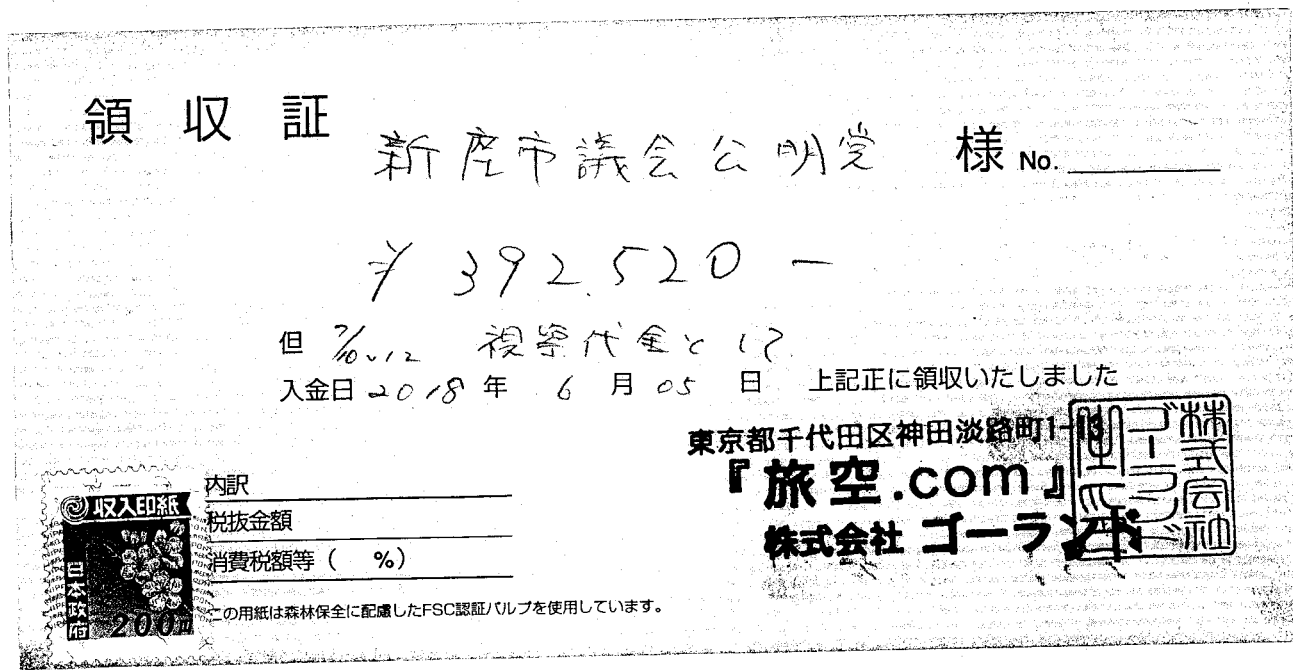 領収証 新座市議会公明党 様 No.
¥392.520-
但 7/10~12 視察代金として
入金日 2018年 6月 05日 上記正に領収いたしました
東京都千代田区神田淡路町1-13
『旅空.com』
株式会社 ゴーランド
株式会社
ゴーランド
収入印紙
日本政府
200円
内訳
税抜金額
消費税額等( %)
この用紙は森林保全に配慮したFSC認証パルプを使用しています。